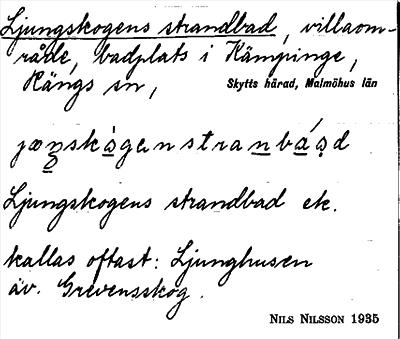 Ljungskogens strandbad, villaom-
råde, badplats i Kämpinge,
Kängs sn, Skytts härad, Malmöhus län
Ljungskogens strandbad etc.
kallas oftast: Ljunghusen
äv. Grevensskog.
NILS NILSSON 1935